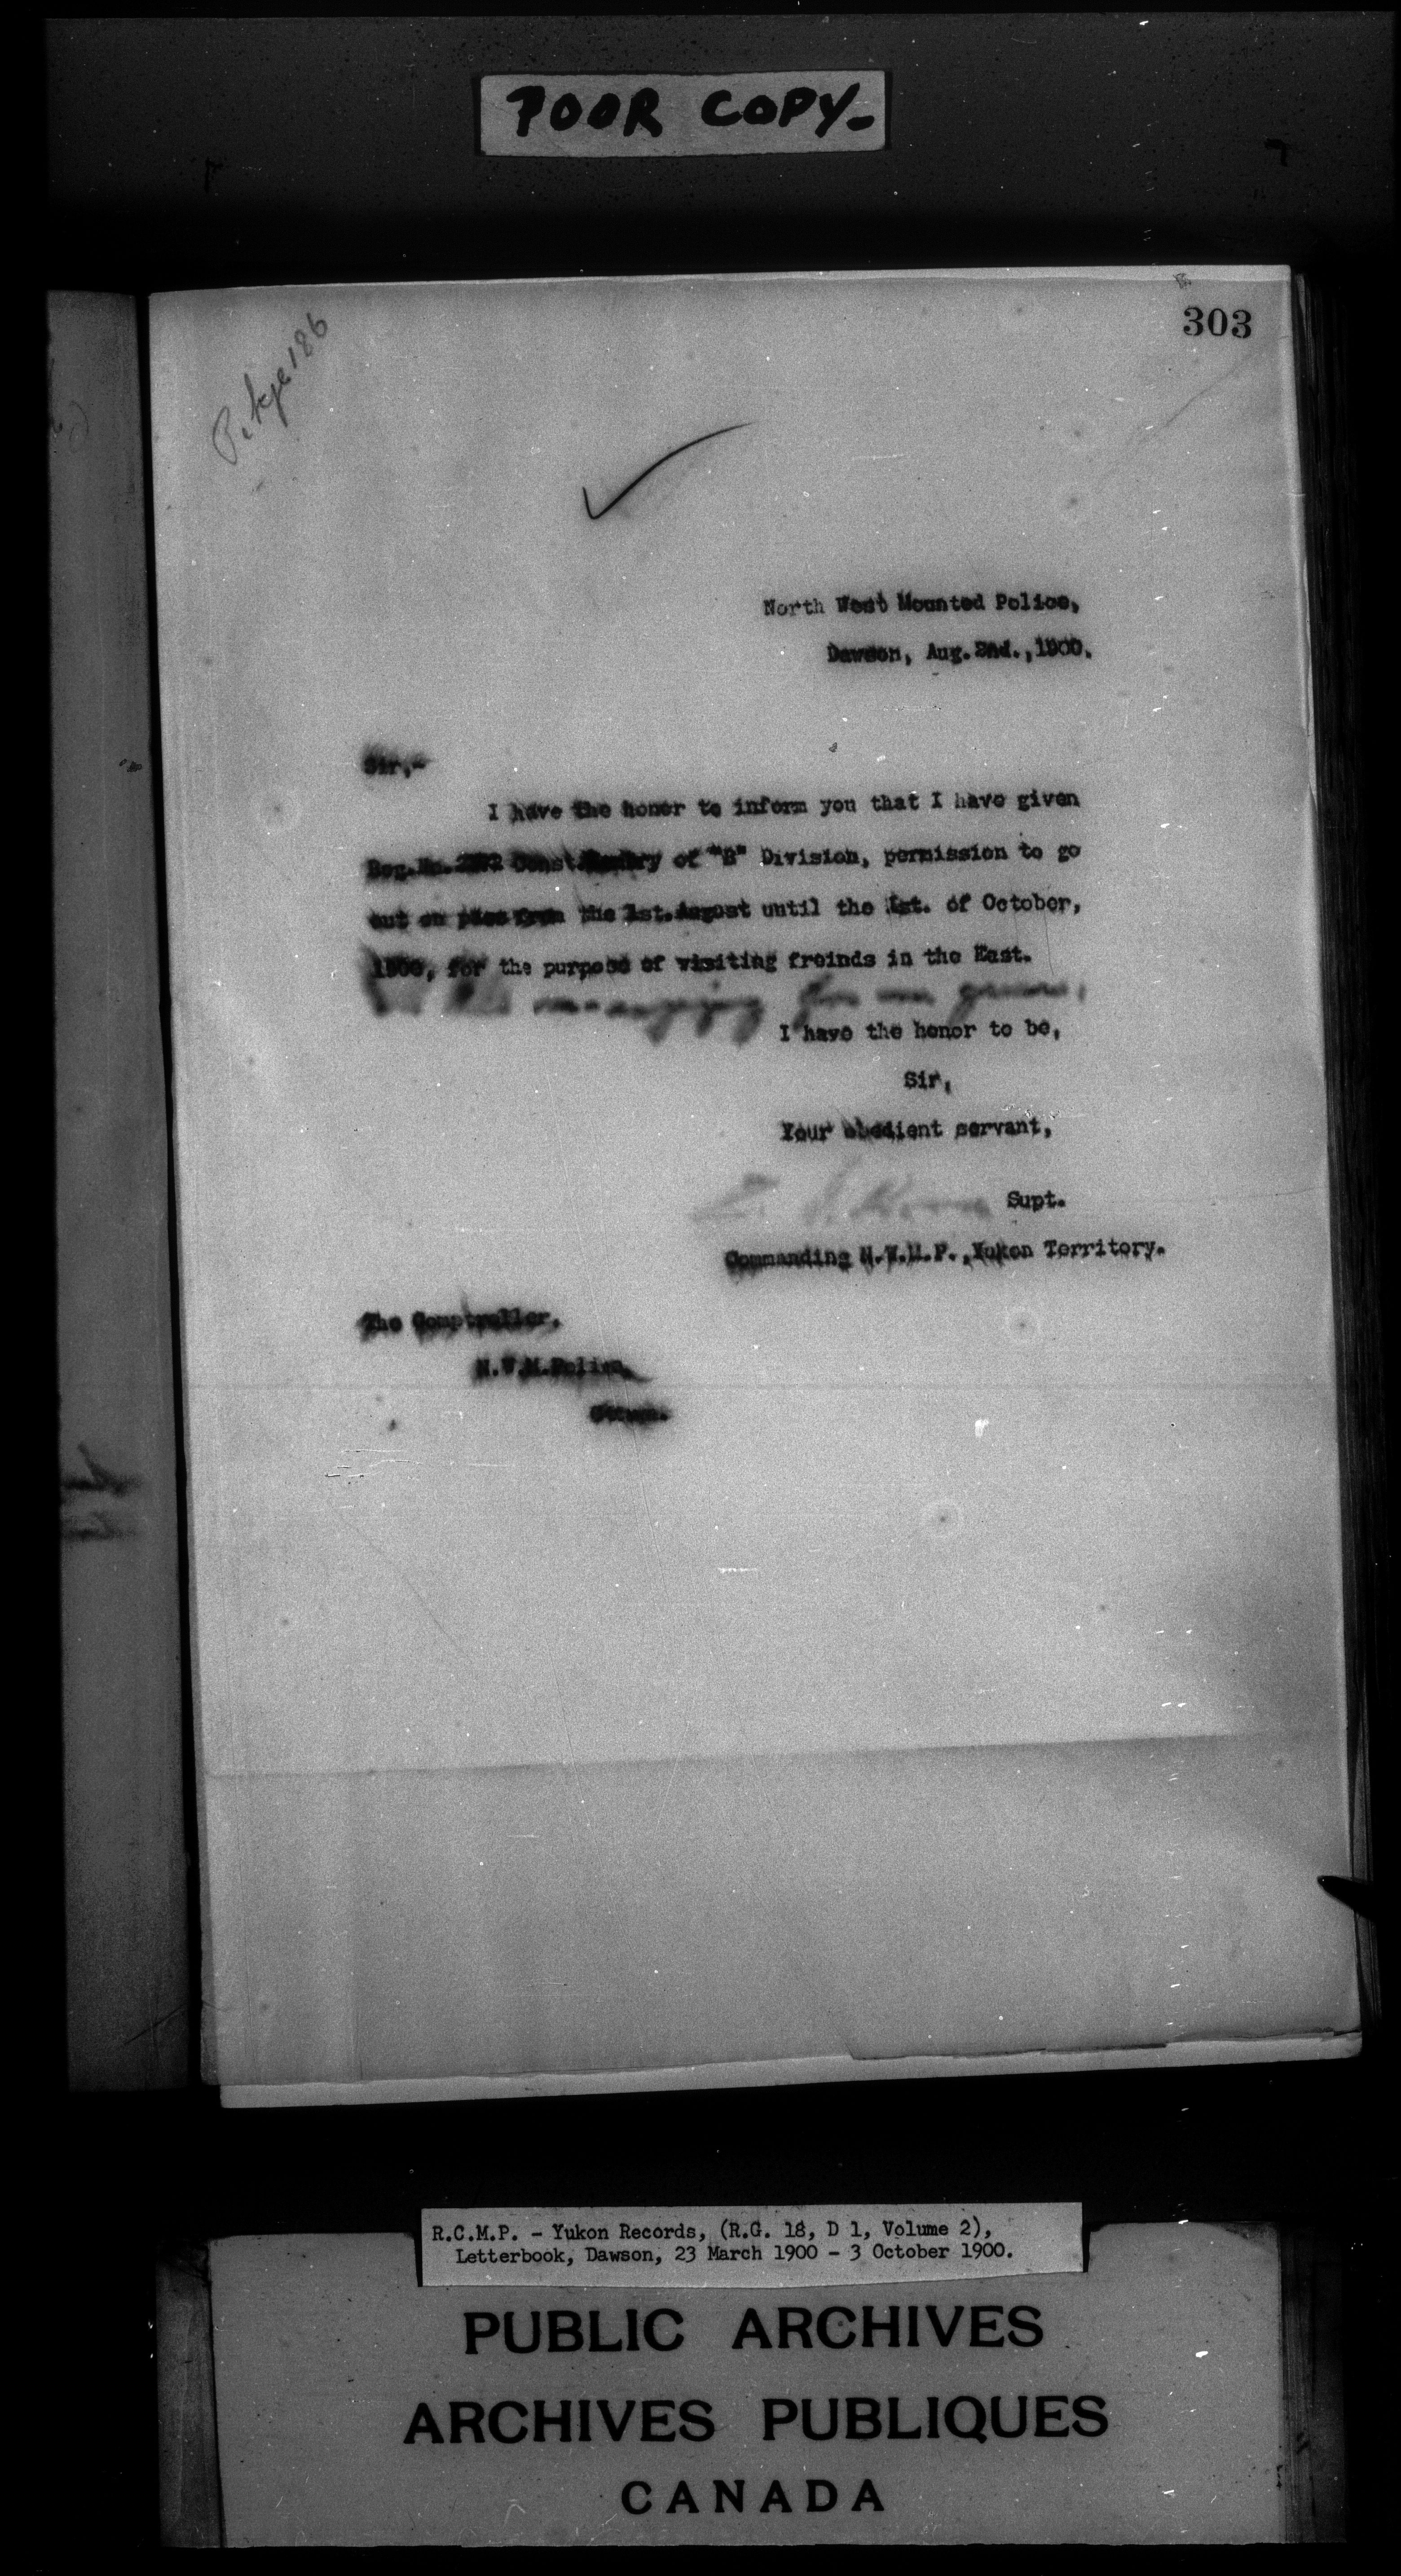 POOR COPY-
303
North West Mounted Police,
Dawson, Aug. 2nd., 1900.
Sir,-
I have the honor to inform you that I have given
Reg.No. Const. of "B" Division, permission to go
out on pass from the 1st. August until the 1st. of October,
1900, for the purpose of visiting freinds in the East.
I have the honor to be,
Sir,
Your obedient servant,
Supt.
Commanding N.W.M.P., Yukon Territory.
The Comptroller,
N.W.M.Police,
R.C.M.P. - Yukon Records, (R.G. 18, D 1, Volume 2),
Letterbook, Dawson, 23 March 1900 - 3 October 1900.
PUBLIC ARCHIVES
ARCHIVES PUBLIQUES
CANADA